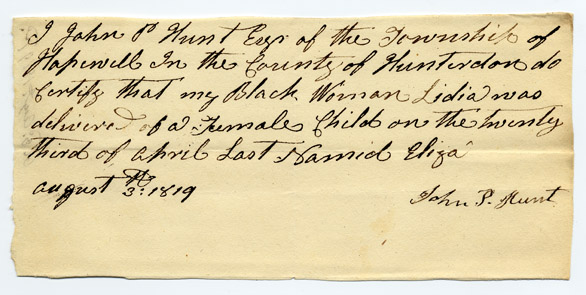 I John P Hunt Esqr of the Township of
Hopewell In the County of Hunterdon do
Certify that my Black Woman Lidia was
delivered of a Female Child on the twenty
third of april Last Namid Eliza
august 3: 1819
John P. Hunt